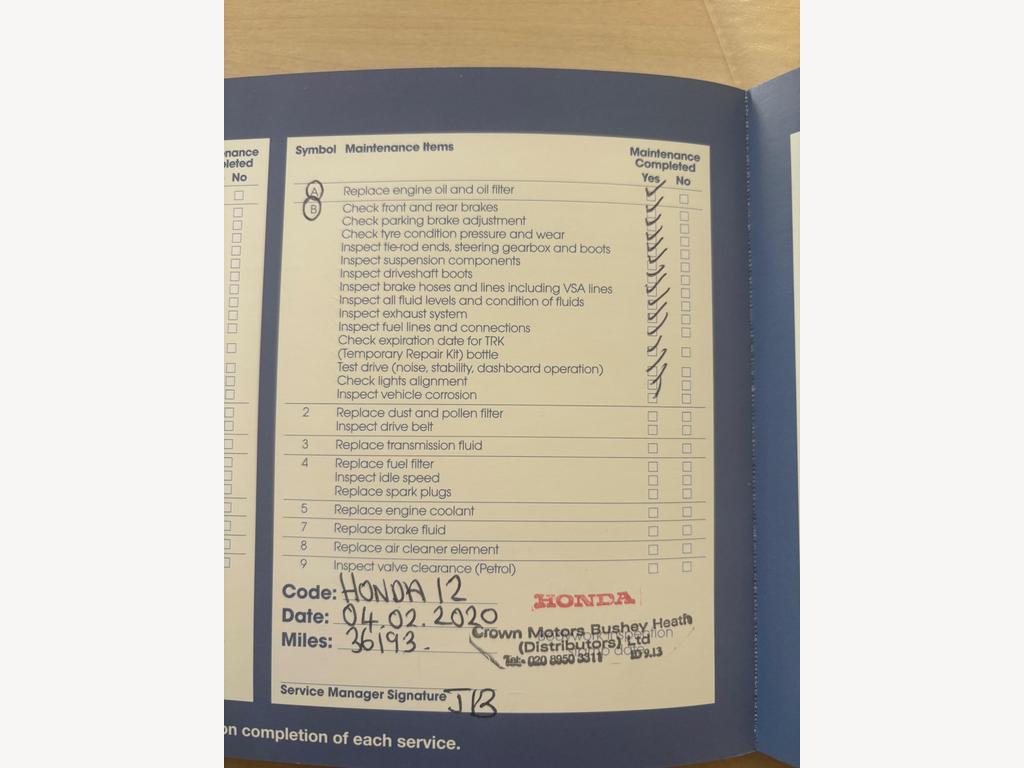 nance
leted
No
Symbol Maintenance Items Maintenance
Completed
Yes No
A Replace engine oil and oil filter
B Check front and rear brakes
Check parking brake adjustment
Check tyre condition pressure and wear
Inspect tie-rod ends, steering gearbox and boots
Inspect suspension components
Inspect driveshaft boots
Inspect brake hoses and lines including VSA lines
Inspect all fluid levels and condition of fluids
Inspect exhaust system
Inspect fuel lines and connections
Check expiration date for TRK
(Temporary Repair Kit) bottle
Test drive (noise, stability, dashboard operation)
Check lights alignment
Inspect vehicle corrosion
2 Replace dust and pollen filter
Inspect drive belt
3 Replace transmission fluid
4 Replace fuel filter
Inspect idle speed
Replace spark plugs
5 Replace engine coolant
7 Replace brake fluid
8 Replace air cleaner element
9 Inspect valve clearance (Petrol)
Code: HONDA 12
Date: 04.02.2020
Miles: 36193.
HONDA
Crown Motors Bushey Heath
(Distributors) Ltd
Tel:- 020 8950 3311 ID 9.13
Service Manager Signature JB
on completion of each service.